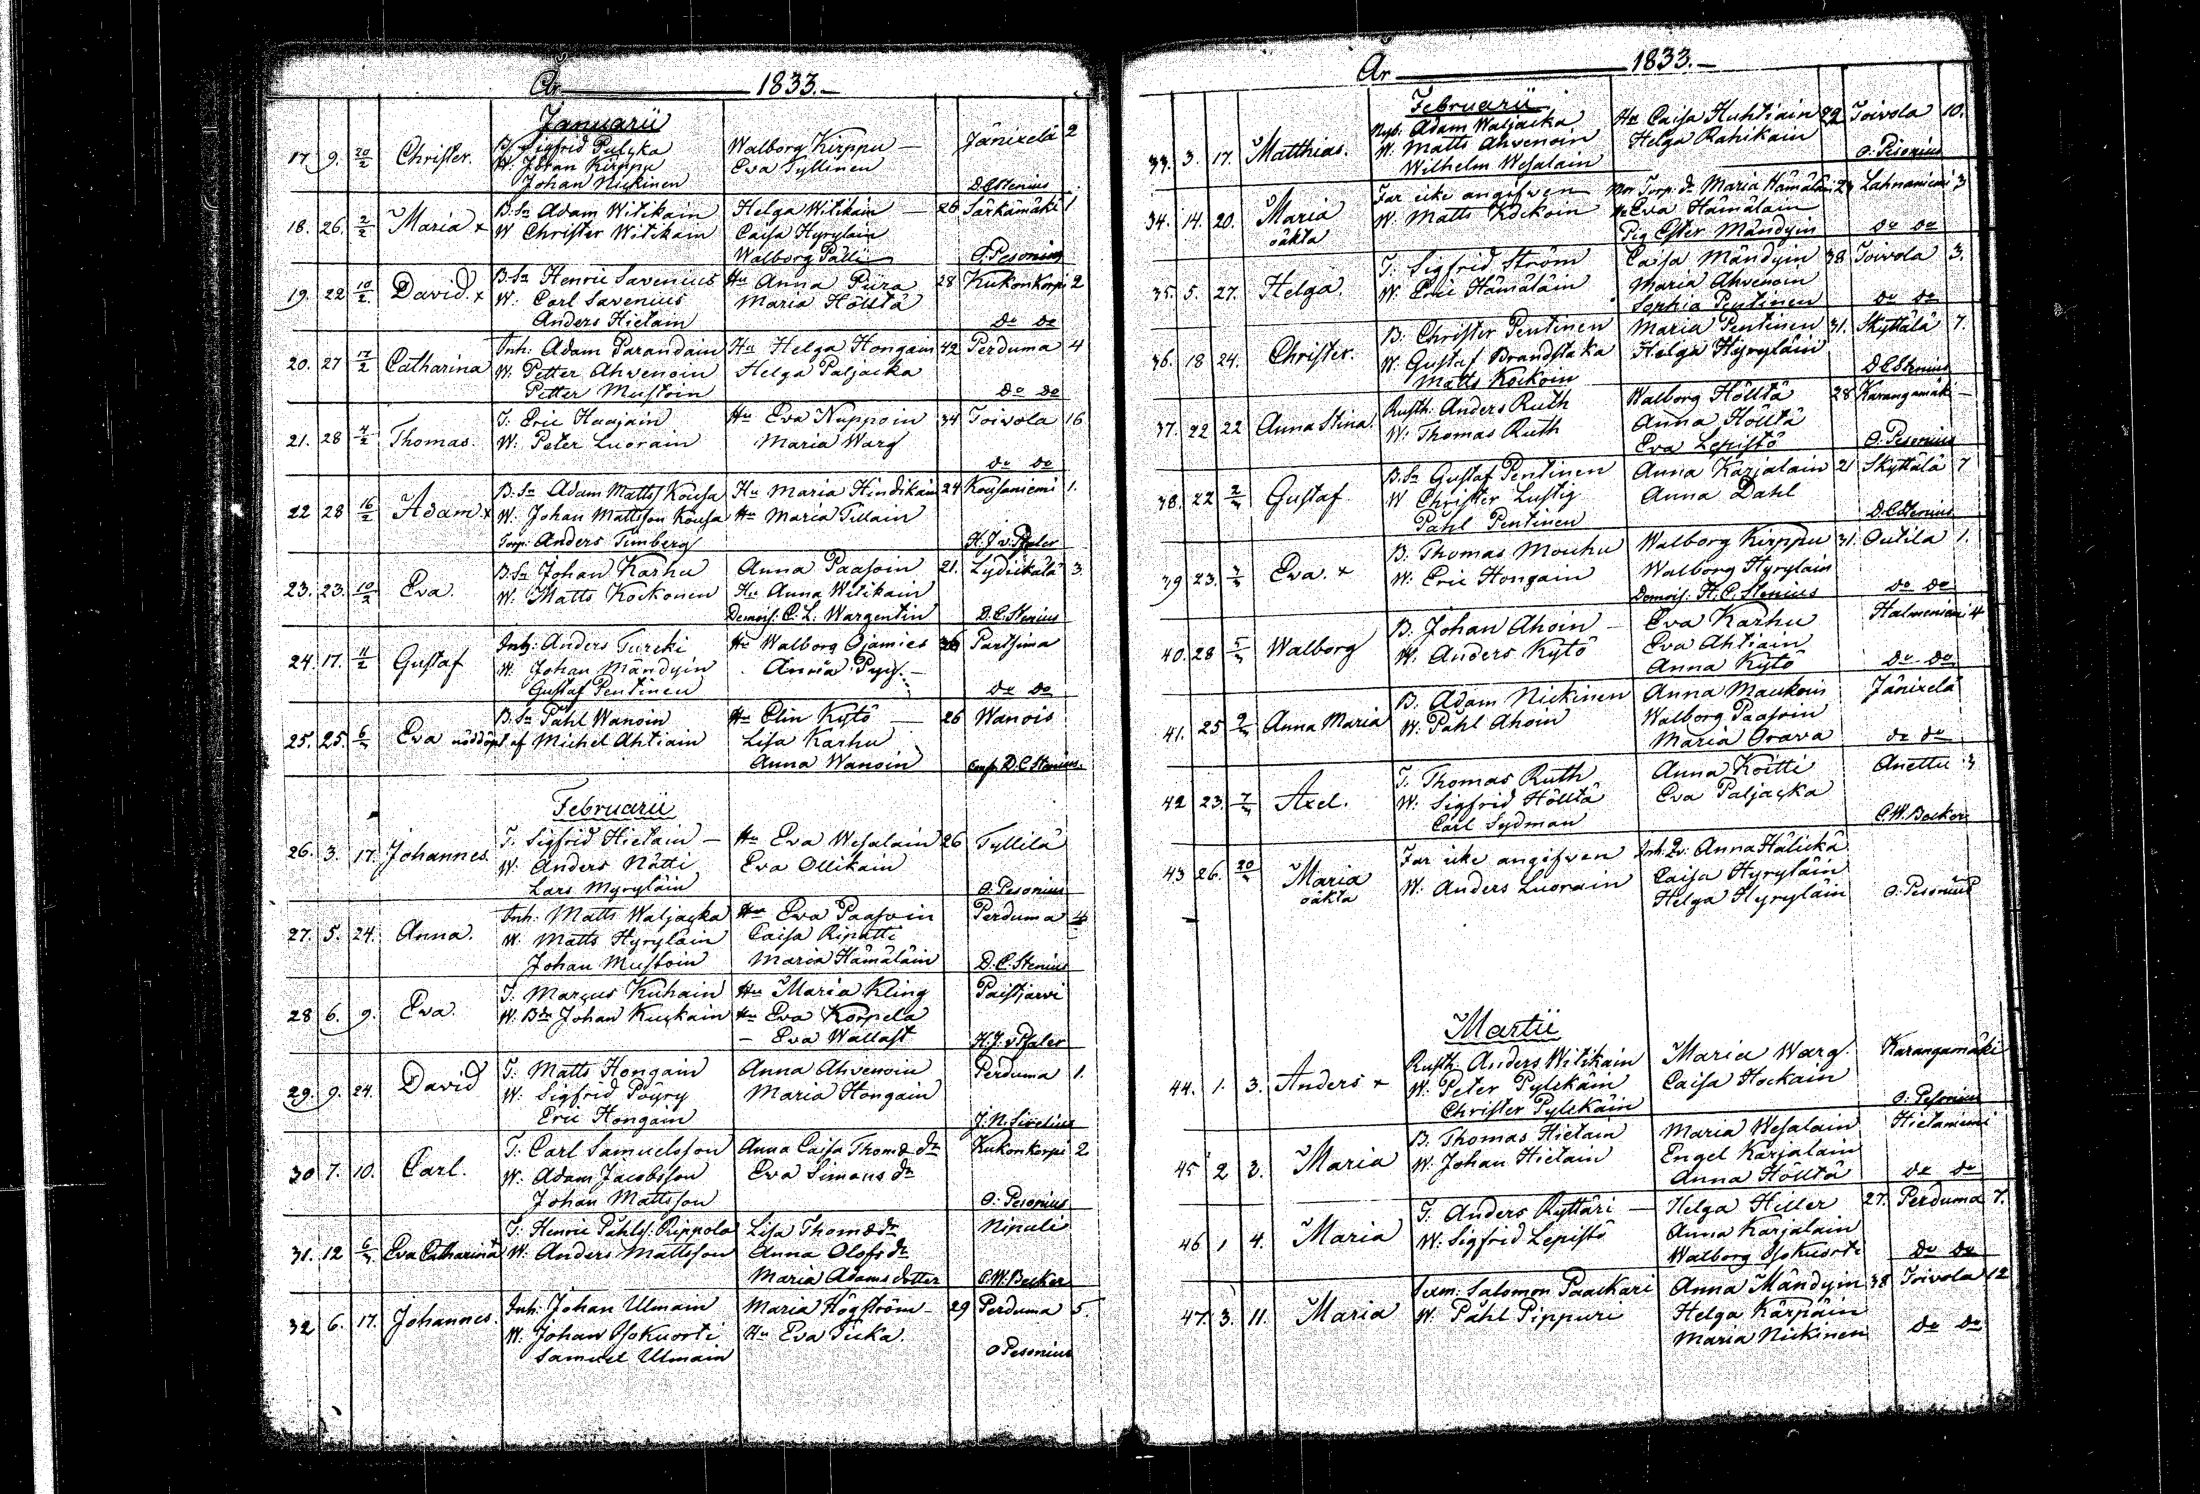 År 1833.
Januarii
17. 9. 20/2 Christer. B. Sigfrid Pulcka Walborg Kirppu Jänixelä 2
W. Johan Kirppu Eva Tyllinen
Johan Nickinen D.C. Stenius
18. 26. 2/2 Maria x B.Sn Adam Witikain Helga Witikain 26 Särkämäki 1
W Christer Witikain Caisa Hyryläin
Walborg Pätti O. Pesonius
19. 22 10/2 David. x B.Sn Henric Savenius Hu Anna Pura 28 Kukonkorpi 2
W. Carl Savenius Maria Hölltä
Anders Hietain Do Do
20. 27 17/2 Catharina Inh. Adam Parandain Hu Helga Hongain 42 Perduma 4
W. Petter Ahvenoin Helga Paljacka
Petter Mustoin Do Do
21. 28 4/2 Thomas. T. Eric Haajain Hu Eva Nuppoin 34 Toivola 16
W. Peter Luorain Maria Warg
Do Do
22 28 16/2 Adam x B.Sn Adam Matts. Kousa Hu Maria Hindikain 24 Kousaniemi 1.
W. Johan Mattsson Kousa Hu Maria Tillain
Torp. Anders Timberg H.J. v. Pfaler
23. 23. 10/2 Eva. B.Sn Johan Karhu Anna Paasoin 21. Lydickälä 3.
W. Matts Kockonen Hu Anna Witikain
Demois. C. L. Wargentin D.C. Stenius
24. 17. 11/2 Gustaf Inh. Anders Turcki Hu Walborg Ojamies 36 Partsima
W. Johan Mändyin Anna Pyy.
Gustaf Pentinen Do Do
25. 25. 6/3 Eva nöddöpt af B.Sn Påhl Wanoin Hu Elin Kytö 26 Wanois
Michel Ahtiain Lisa Karhu
Anna Wanoin Conf. D.C. Stenius.
Februarii
26. 3. 17. Johannes. T. Sigfrid Hietain Hu Eva Wesalain 26 Tyllilä
W. Anders Nätti Eva Ollikain
Lars Myryläin O. Pesonius
27. 5. 24. Anna. Inh. Matts Waljacka Hu Eva Paasoin Perduma 4
W. Matts Hyryläin Caisa Ripatti
Johan Mustoin Maria Hämäläin D.C. Stenius
28 6. 9. Eva. T. Marcus Kuhain Hu Maria Kling Paistjärvi
W. Bde Johan Kuckain Hu Eva Korpela
Eva Wallast H.J. v Pfaler
29. 9. 24. David T. Matts Hongain Anna Ahvenoin Perduma 1.
W. Sigfrid Pöyry Maria Hongain
Eric Hongain J.N. Sirelius
30 7. 10. Carl. T. Carl Samuelsson Anna Caisa Thomæ dr Kukonkorpi 2
W. Adam Jacobsson Eva Simons dr
Johan Mattsson O. Pesonius
31. 12 6/3 Eva Catharina T. Henric Påhls. Rippola Lisa Thomædr Nipuli
W. Anders Mattsson Anna Olofs dr
Maria Adams dotter C.W. Becker
32 6. 17. Johannes. Inh. Johan Ulmain Maria Högström 29 Perduma 5.
W. Johan Isokuorti Hu Eva Ticka.
Samuel Ulmain O Pesonius
År 1833.
Februarii
33. 3. 17. Matthias. Nyb. Adam Waljacka Hu Caisa Huhtiain 22 Toivola 10.
W. Matts Ahvenoin Helga Rahikain
Wilhelm Wesalain O. Pesonius
34. 14. 20. Maria Far icke angifven Mor Torp. dr Maria Hämäläin 24 Lahnaniemi 3
oäkta W. Matts Kockoin Hu Eva Hämäläin
Pig Ester Mändyin Do Do
35. 5. 27. Helga. T. Sigfrid Ström Caisa Mändyin 38 Toivola 3.
W. Eric Hämäläin Maria Ahvenoin
Sophia Pentinen Do Do
36. 18 24. Christer. B. Christer Pentinen Maria Pentinen 31. Skyttälä 7.
W. Gustaf Brandstaka Helga Hyryläin
Matts Kockoin D.C. Stenius
37. 22 22 Anna Stina. Rusth. Anders Ruth Walborg Hölltä 28 Karangamäki
W. Thomas Ruth Anna Hölltä
Eva Lepistö O. Pesonius
38. 22 2/3 Gustaf B.Sn Gustaf Pentinen Anna Karjalain 21 Skyttälä 7
W Christer Lustig Anna Dahl
Påhl Pentinen D.C. Stenius
39 23. 3/3 Eva. x B. Thomas Mouhu Walborg Kirppu 31. Outila 1.
W. Eric Hongain Walborg Hyryläin
Demois. H.C. Stenius Do Do
40. 28 5/3 Walborg B. Johan Ahoin Eva Karhu Halmeniemi 4
W. Anders Kytö Eva Ahtiain
Anna Kytö Do Do
41. 25 9/3 Anna Maria B. Adam Nickinen Anna Maukoin Jänixelä
W. Påhl Ahoin Walborg Paasoin
Maria Orava Do Do
42 23. 7/3 Axel. T. Thomas Ruth Anna Koitti Anettu 3
W. Sigfrid Hölltä Eva Paljacka
Carl Sydman C.W. Becker
43 26. 20/3 Maria Far icke angifven Inh. Qv. Anna Hälickä
oäkta W. Anders Luorain Caisa Hyryläin
Helga Hyryläin O. Pesonius
Martii
44. 1. 3. Anders x Rusth. Anders Witikain Maria Warg. Karangamäki
W. Peter Pylckäin Caisa Hockain
Christer Pylckäin O. Pesonius
45 2 3. Maria B. Thomas Hietain Maria Wesalain Hietaniemi
W. Johan Hietain Engel Karjalain
Anna Hölltä Do Do
46 1 4. Maria T. Anders Ryttäri Helga Hiller 27. Perduma 7.
W. Sigfrid Lepistö Anna Karjalain
Walborg Isokuorti Do Do
47. 3. 11. Maria Salomon Paackari Anna Mändyin 38 Toivola 12
W. Påhl Pippuri Helga Kärpäin
Maria Nickinen Do Do